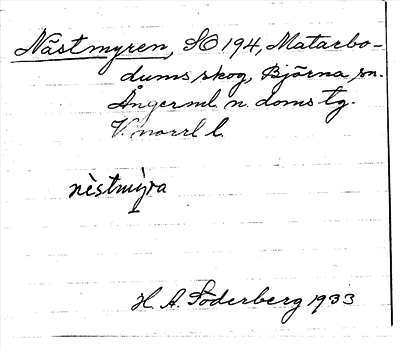 Nästmyren, SO 194, Matarbo-
dums skog, Björna sn.
Ångerml. n. doms tg.
V. norrl l.
nèstmỳra
H. A. Söderberg 1933